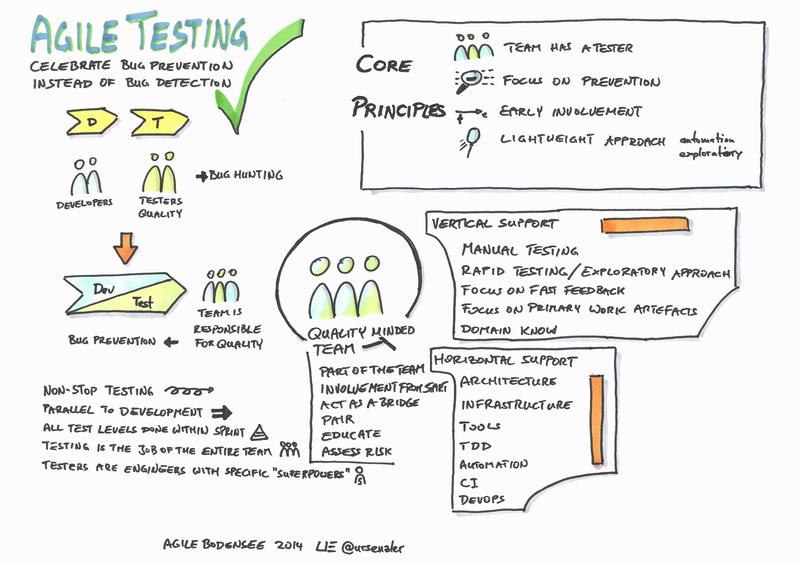 AGILE TESTING
CELEBRATE BUG PREVENTION
INSTEAD OF BUG DETECTION
D T
DEVELOPERS
TESTERS
QUALITY
BUG HUNTING
Dev
Test
TEAM IS
RESPONSIBLE
FOR QUALITY
BUG PREVENTION
NON-STOP TESTING
PARALLEL TO DEVELOPMENT
ALL TEST LEVELS DONE WITHIN SPRINT
TESTING IS THE JOB OF THE ENTIRE TEAM
TESTERS ARE ENGINGERS WITH SPECIFIC "SUPERPOWERS"
CORE
PRINCIPLES
TEAM HAS A TESTER
FOCUS ON PREVENTION
EARLY INVOLVEMENT
LIGHTWEIGHT APPROACH
automation
exploratory
QUALITY MINDED
TEAM
PART OF THE TEAM
INVOLVEMENT FROM START
ACT AS A BRIDGE
PAIR
EDUCATE
ASSESS RISK
VERTICAL SUPPORT
MANUAL TESTING
RAPID TESTING/EXPLORATORY APPROACH
FOCUS ON FAST FEEDBACK
FOCUS ON PRIMARY WORK ARTEFACTS
DOMAIN KNOW
HORIZONTAL SUPPORT
ARCHITECTURE
INFRASTRUCTURE
TOOLS
TDD
AUTOMATION
CI
DEVOPS
AGILE BODENSEE 2014 LIE @ursenzler